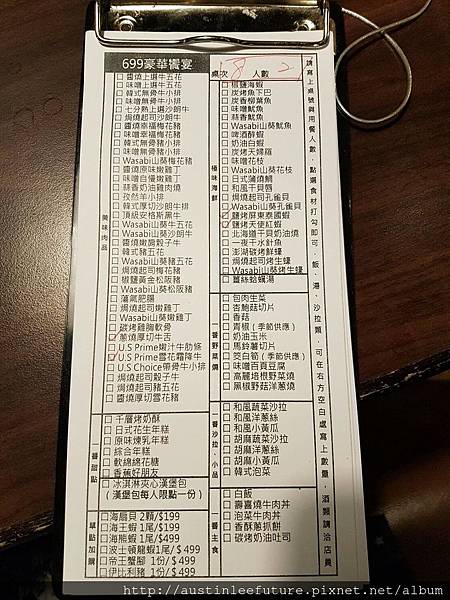 699豪華饗宴
桌次 8 人數 2
請寫上桌號與用餐人數,點選食材打勾即可,飯、湯、沙拉類,可在右方空白處寫上數量,酒類請洽店員
美味肉品
□醬燒上選牛五花
□味噌上選牛五花
□韓式無骨牛小排
□味噌無骨牛小排
□七分熟上選沙朗牛
□焗燒起司沙朗牛
□醬燒幸福梅花豬
□味噌幸福梅花豬
□韓式無骨豬小排
□味噌無骨豬小排
□Wasabi山葵梅花豬
□醬燒原味嫩雞丁
□味噌自慢嫩雞丁
□蒜香奶油雞肉燒
□孜然羊小排
□韓式厚切沙朗牛排
□頂級安格斯黑牛
□Wasabi山葵牛五花
□Wasabi山葵沙朗牛
□醬燒嫩肩骰子牛
□韓式豬五花
□Wasabi山葵豬五花
□焗燒起司梅花豬
□椒鹽黃金松阪豬
□Wasabi山葵松阪豬
□薄氣肥腸
□焗燒起司嫩雞丁
□Wasabi山葵嫩雞丁
□碳烤雞胸軟骨
□蔥燒厚切牛舌
□U.S Prime嫩汁牛肋條
□U.S Prime雪花霜降牛
□U.S Choice帶骨牛小排
□焗燒起司骰子牛
□焗燒起司豬五花
□醬燒厚切雪花豬
一番甜點
□千層烤奶酥
□日式花生年糕
□原味煉乳年糕
□綜合年糕
□軟綿綿花糖
□香蕉好朋友
□冰淇淋夾心漢堡包
(漢堡包每人限點一份)
單點加購
□海扇貝 2顆/$199
□海王蝦 1尾/$199
□海熊蝦 1尾/$499
□波士頓龍蝦1尾/$499
□帝王蟹腳 1份/$499
□伊比利豬 1份/$499
極味海鮮
□椒鹽海蝦
□炭烤魚下巴
□炭香柳葉魚
□味噌魷魚
□蒜香魷魚
□Wasabi山葵魷魚
□啤酒醉蝦
□奶油白蝦
□炭烤天婦羅
□味噌花枝
□Wasabi山葵花枝
□日式蒲燒鯛
□和風干貝唇
□焗燒起司孔雀貝
□Wasabi山葵孔雀貝
□鹽烤屏東泰國蝦
□鹽烤天使紅蝦
□北海道干貝奶油燒
□一夜干水針魚
□澎湖碳烤鮮蠔
□焗燒起司烤生蠔
□Wasabi山葵烤生蠔
□薑絲蛤蠣湯
一番野菜燒
□包肉生菜
□杏鮑菇切片
□香菇
□青椒(季節供應)
□奶油玉米
□馬鈴薯切片
□筊白筍(季節供應)
□味噌百頁豆腐
□高麗培根野菜燒
□黑椒野菇洋蔥燒
一番沙拉、小品
□和風蔬菜沙拉
□和風洋蔥絲
□和風小黃瓜
□胡麻蔬菜沙拉
□胡麻洋蔥絲
□胡麻小黃瓜
□韓式泡菜
一番主食
□白飯
□壽喜燒牛肉丼
□泡菜牛肉丼
□香酥蔥抓餅
□碳烤奶油吐司
http://austinleefuture.pixnet.net/album